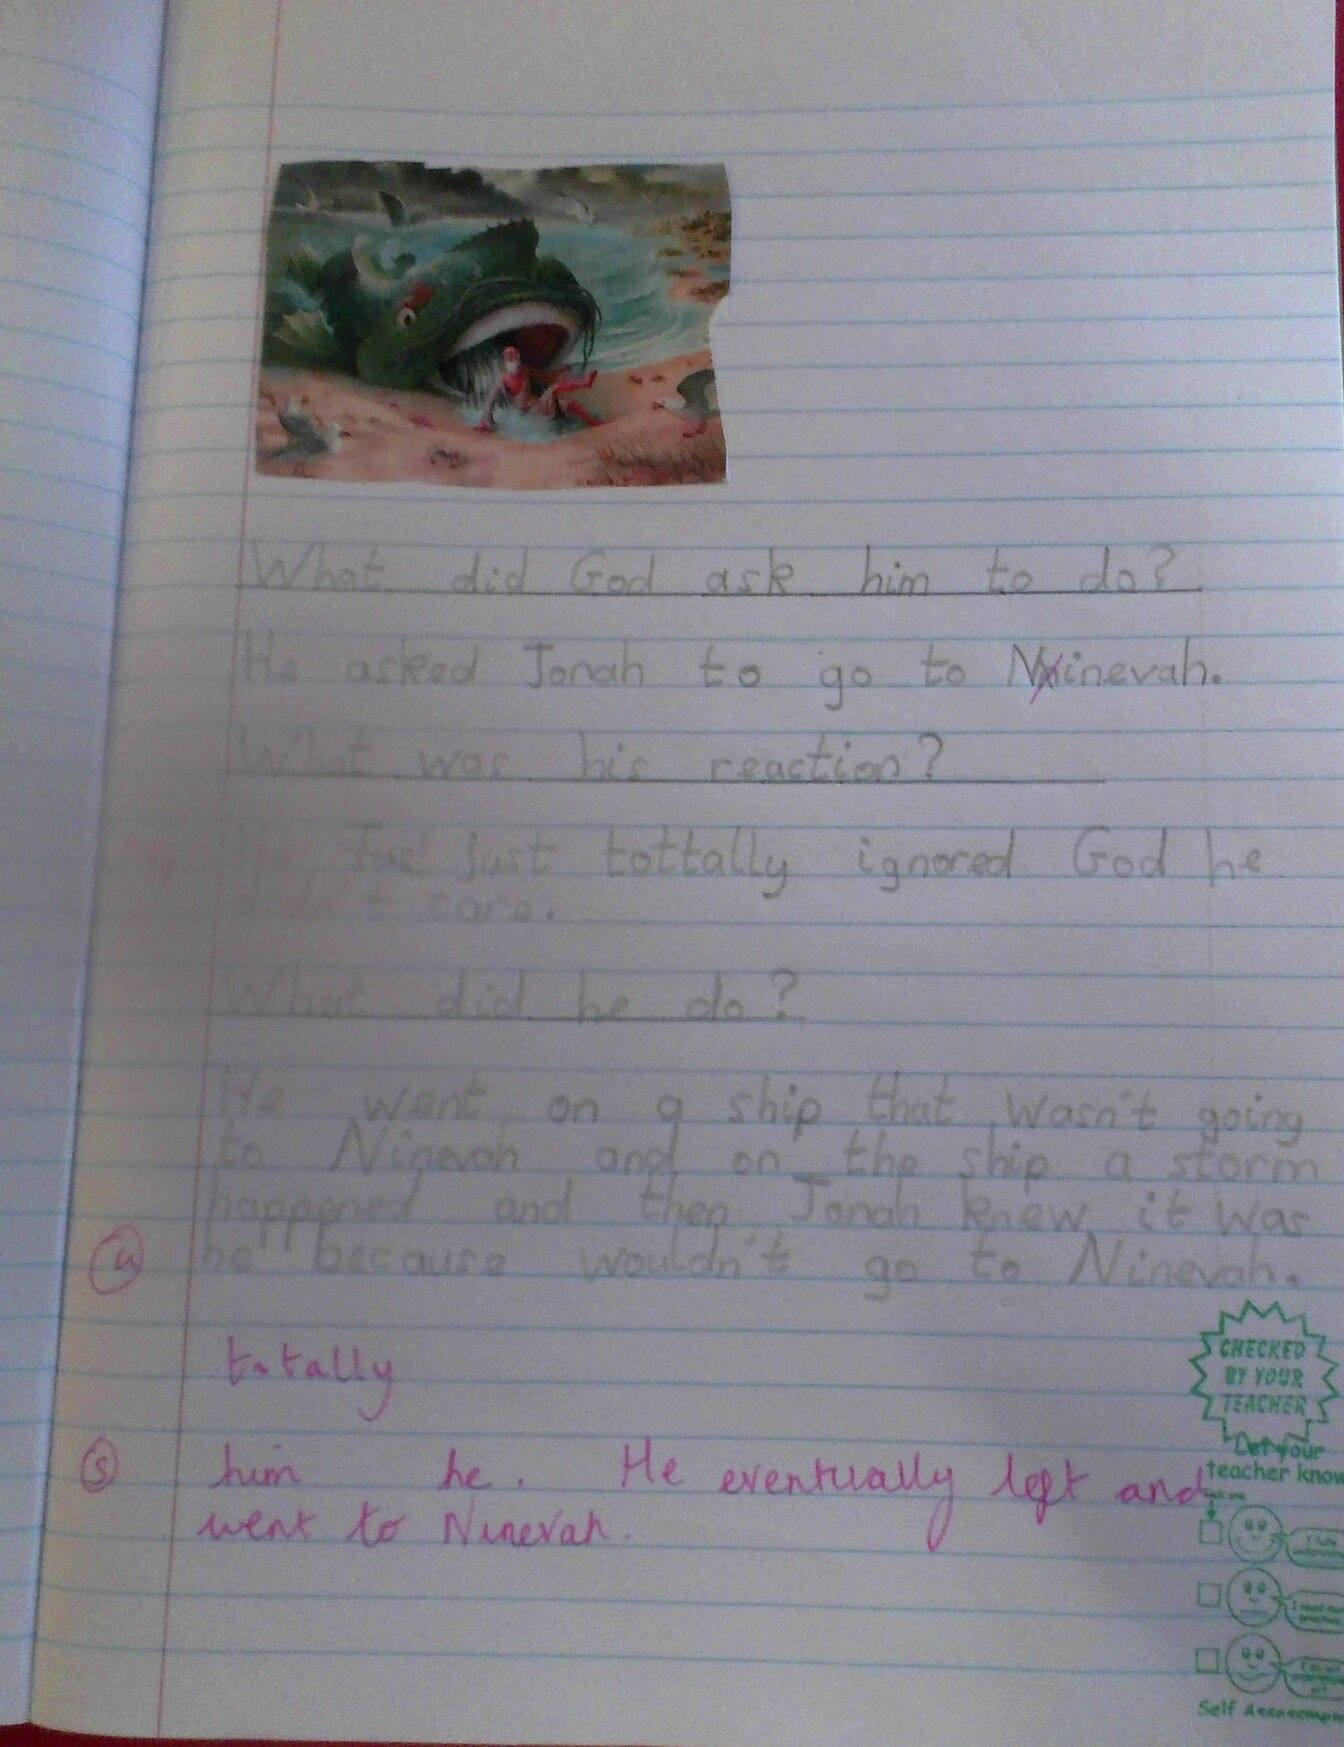 What did God ask him to do?
He asked Jonah to go to Ninevah.
What was his reaction?
He just tottally ignored God he
didn't care.
What did he do?
He went on a ship that wasn't going
to Ninevah and on the ship a storm
happened and then Jonah knew it was
he because wouldn't go to Ninevah.
totally
him he. He eventually left and
went to Ninevah.
CHECKED
BY YOUR
TEACHER
Let your
teacher know
Self Assessment